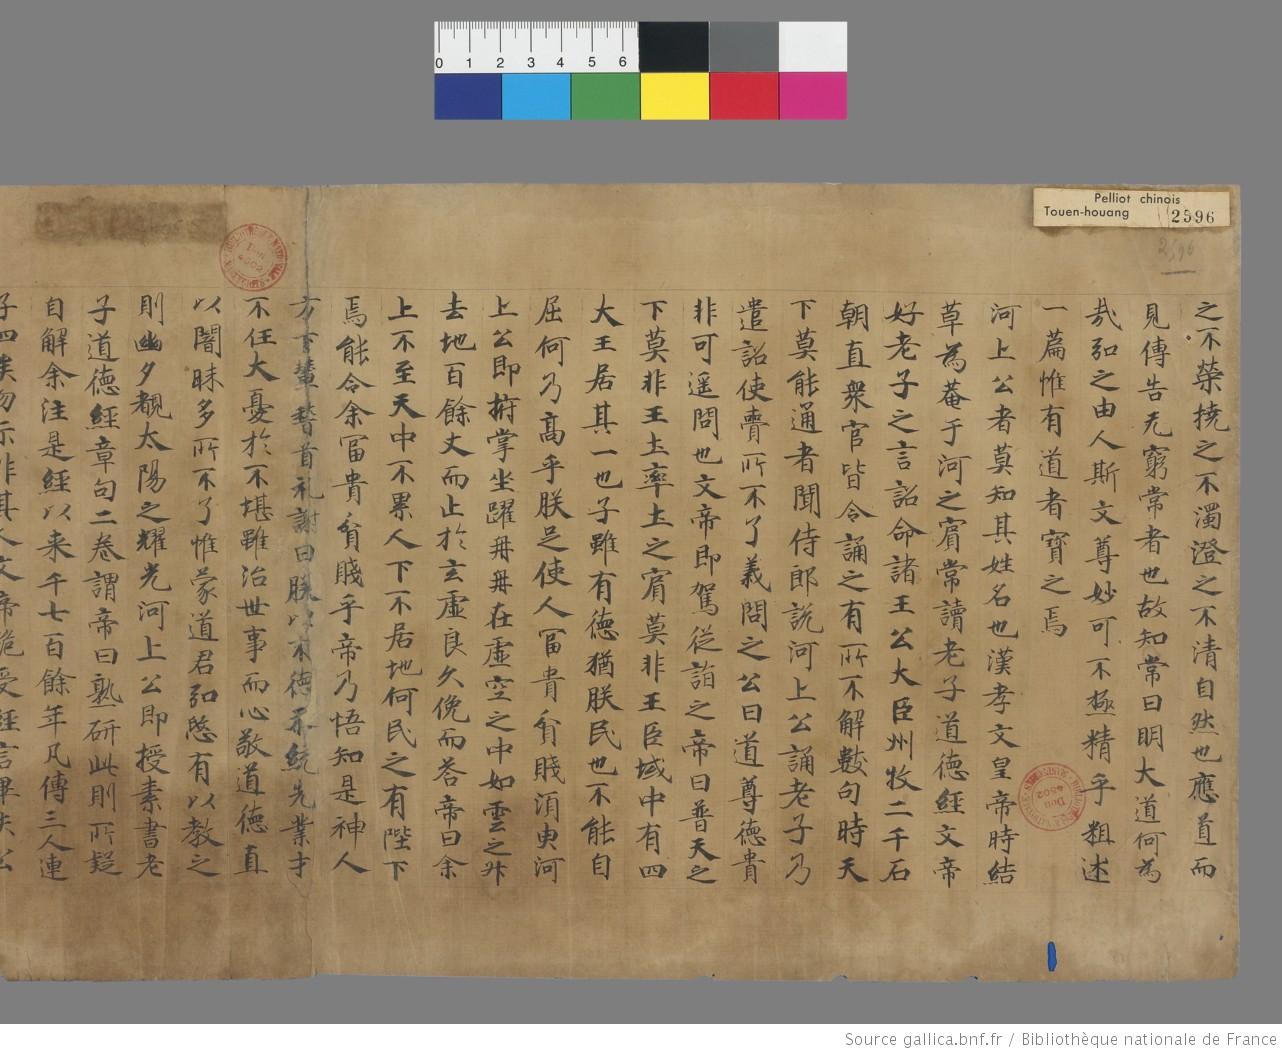 0 1 2 3 4 5 6
Pelliot chinois
Touen-houang 2596
2596
之不榮撓之不濁澄之不清自然也應道而
見傳告无窮常者也故知常曰明大道何為
哉弘之由人斯文尊妙可不極精乎粗述
一篇惟有道者寶之焉
河上公者莫知其姓名也漢孝文皇帝時結
草為菴于河之濵常讀老子道德經文帝
好老子之言詔命諸王公大臣州牧二千石
朝直衆官皆令誦之有所不解數句時天
下莫能通者聞侍郎說河上公誦老子乃
遣詔使賫所不了義問之公曰道尊德貴
非可遥問也文帝即駕從詣之帝曰普天之
下莫非王土率土之濵莫非王臣域中有四
大王居其一也子雖有德猶朕民也不能自
屈何乃高乎朕足使人冨貴貧賤湏臾河
上公即拊掌坐躍冉冉在虛空之中如雲之升
去地百餘丈而止於玄虛良久俛而荅帝曰余
上不至天中不累人下不居地何民之有陛下
焉能令余冨貴貧賤乎帝乃悟知是神人
方下輦稽首礼謝曰朕以不德忝統先業才
不任大憂於不堪雖治世事而心敬道德直
以闇昧多所不了惟蒙道君弘愍有以教之
則幽夕覩太陽之耀光河上公即授素書老
子道德經章句二巻謂帝曰熟研此則所疑
自解余注是經以来千七百餘年凡傳三人連
子四矣勿示非其人文帝跪受經言畢失公
Source gallica.bnf.fr / Bibliothèque nationale de France